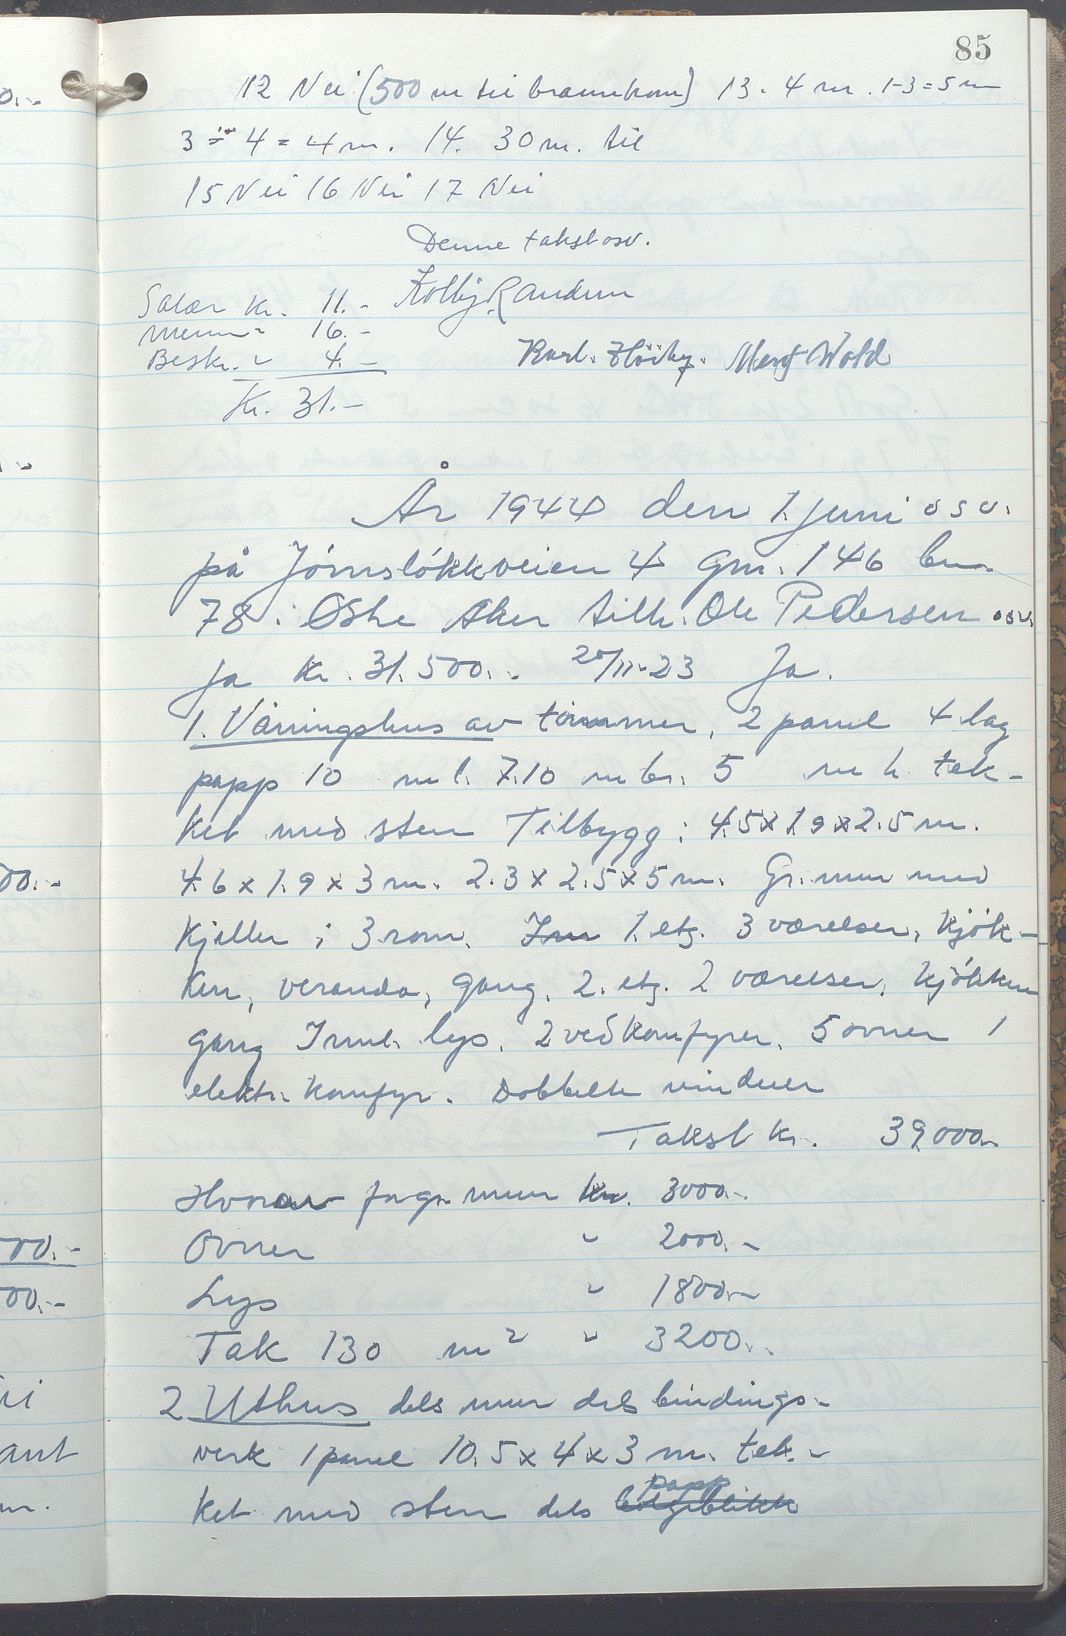 85
12 Nei (500 m til brannkum) 13. 4 m. 1-3 = 5 m
3 ÷ 4 = 4 m. 14. 30 m. til
15 Nei 16 Nei 17 Nei
Denne takst osv.
Salær Kr. 11.-
Kolbj. Randum
Menn " 16.-
Beskr. " 4.-
Karl. Høiby. Marg Wold
Kr. 31.-
År 1944 den 1. juni osv.
på Jørnsløkkveien 4 gnr. 146 bnr.
78 i Østre Aker tilh. Ole Pedersen osv.
Ja Kr. 31.500.- 20/11-23 Ja.
1. Våningshus av tømmer, 2 panel 4 lag
papp 10 m l. 7.10 m br. 5 m h. tek-
ket med sten Tilbygg: 4.5 x 1.9 x 2.5 m.
4.6 x 1.9 x 3 m. 2.3 x 2.5 x 5 m. Gr. mur med
kjeller i 3 rom. 1. etg. 3 værelser, kjøk-
ken, veranda, gang. 2. etg. 2 værelser, kjøkken
gang Innl. lys. 2 vedkomfyrer, 5 ovner 1
elektr. komfyr. Dobbelte vinduer
Takst kr. 39.000.-
Herav for gr. mur kr. 3000.-
Ovner " 2000.-
Lys " 1800.-
Tak 130 m² " 3200.-
2 Uthus dels mur dels bindings-
verk 1 panel 10.5 x 4 x 3 m. tek-
papp
ket med sten dels bølgeblikk
00.-
00.-
00.-